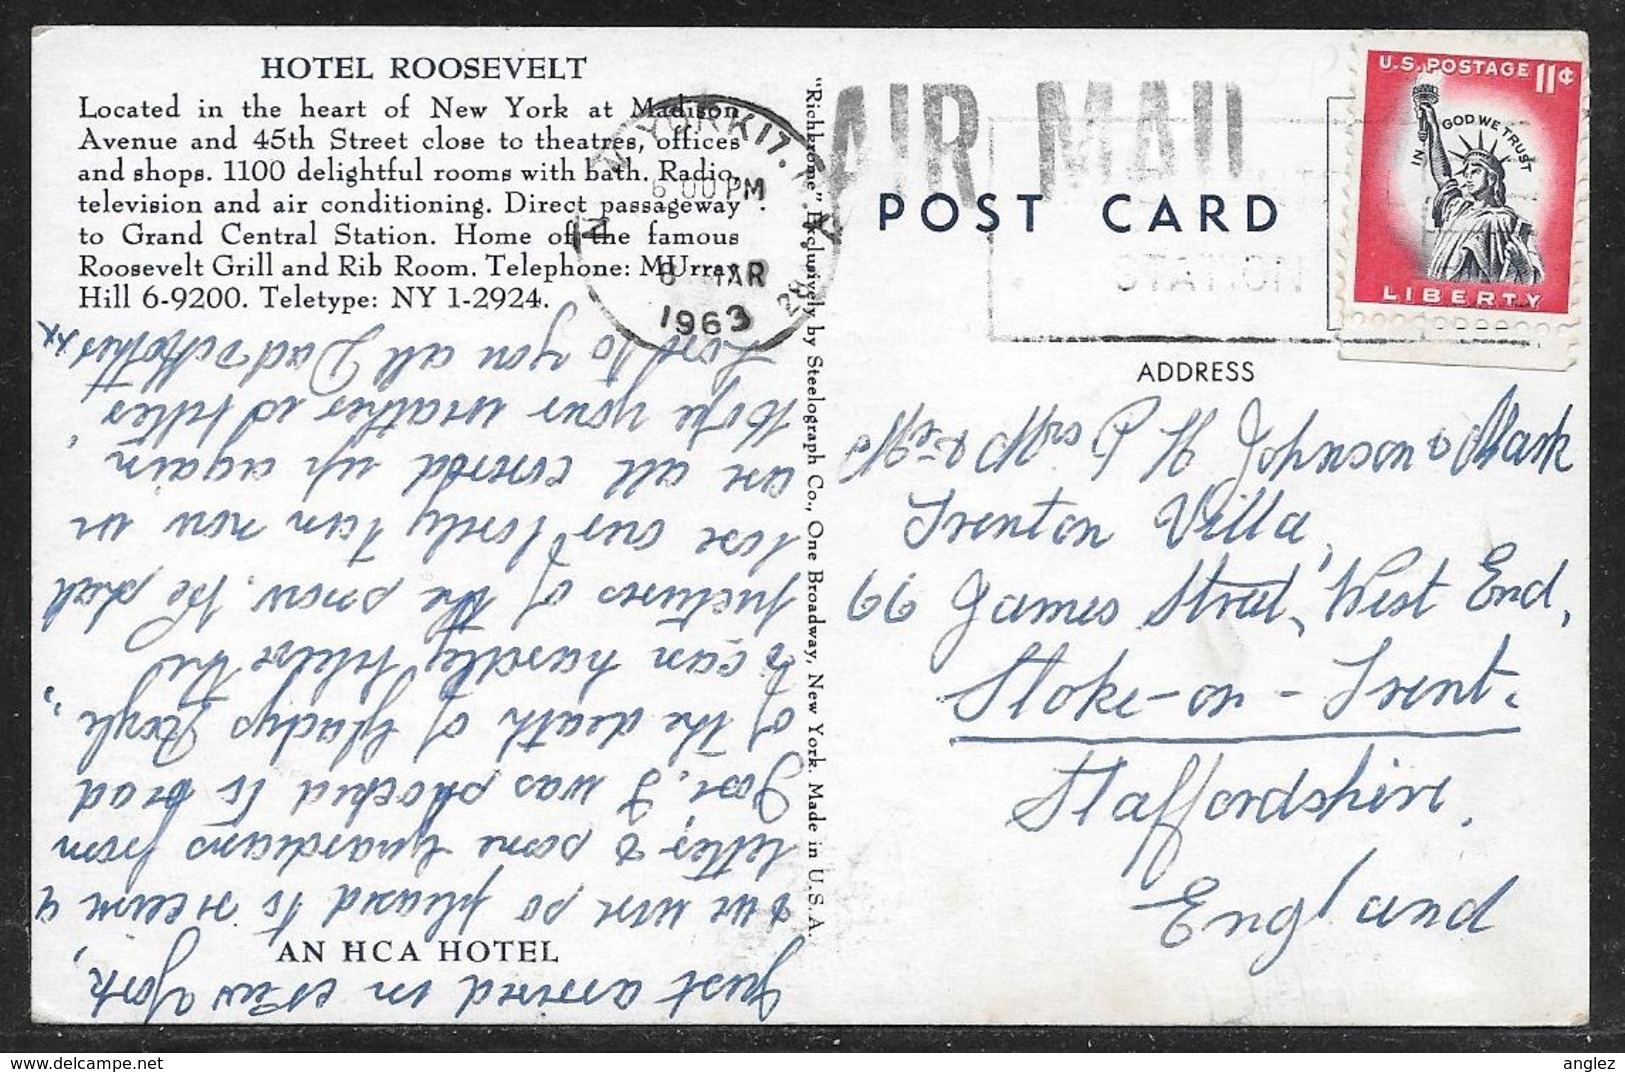 HOTEL ROOSEVELT
Located in the heart of New York at Madison
Avenue and 45th Street close to theatres, offices
and shops. 1100 delightful rooms with bath. Radio,
television and air conditioning. Direct passageway
to Grand Central Station. Home of the famous
Roosevelt Grill and Rib Room. Telephone: MUrray
Hill 6-9200. Teletype: NY 1-2924.
Just arrived in New York,
& we were so pleased to receive a
letter, & some Guardians from
Jose, I was shocked to read
of the death of Gladys
I can hardly believe the
pictures of the snow. We shall
lose our lovely tan now we
are all covered up again
Hope your weather is better
Love to you all Dad & Mother xx
AN HCA HOTEL
"Richkrome" Exclusively by Steelograph Co., One Broadway, New York. Made in U.S.A.
NEW YORK 17. N.Y.
6 00 PM
MAR
1963
AIR MAIL
POST CARD
STATION
U.S. POSTAGE 11¢
IN GOD WE TRUST
LIBERTY
ADDRESS
Mr & Mrs P H Johnson & Mark
Trenton Villa,
66 James Street, West End,
Stoke-on-Trent.
Staffordshire.
England
anglez